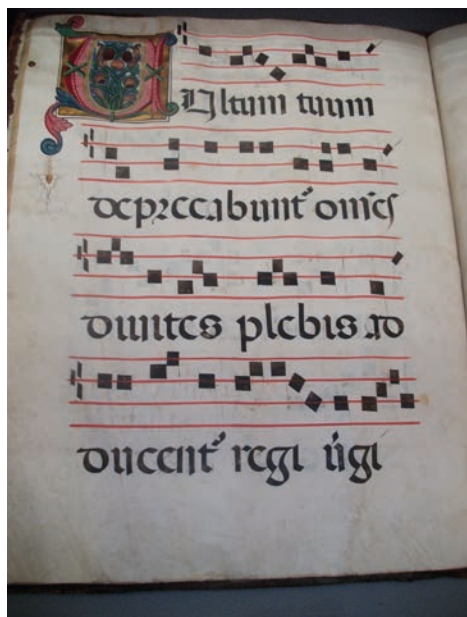 VUltum tuum
deprecabunt᾿ om̄es
diuites plebis ad
ducent᾿ regi ūgi